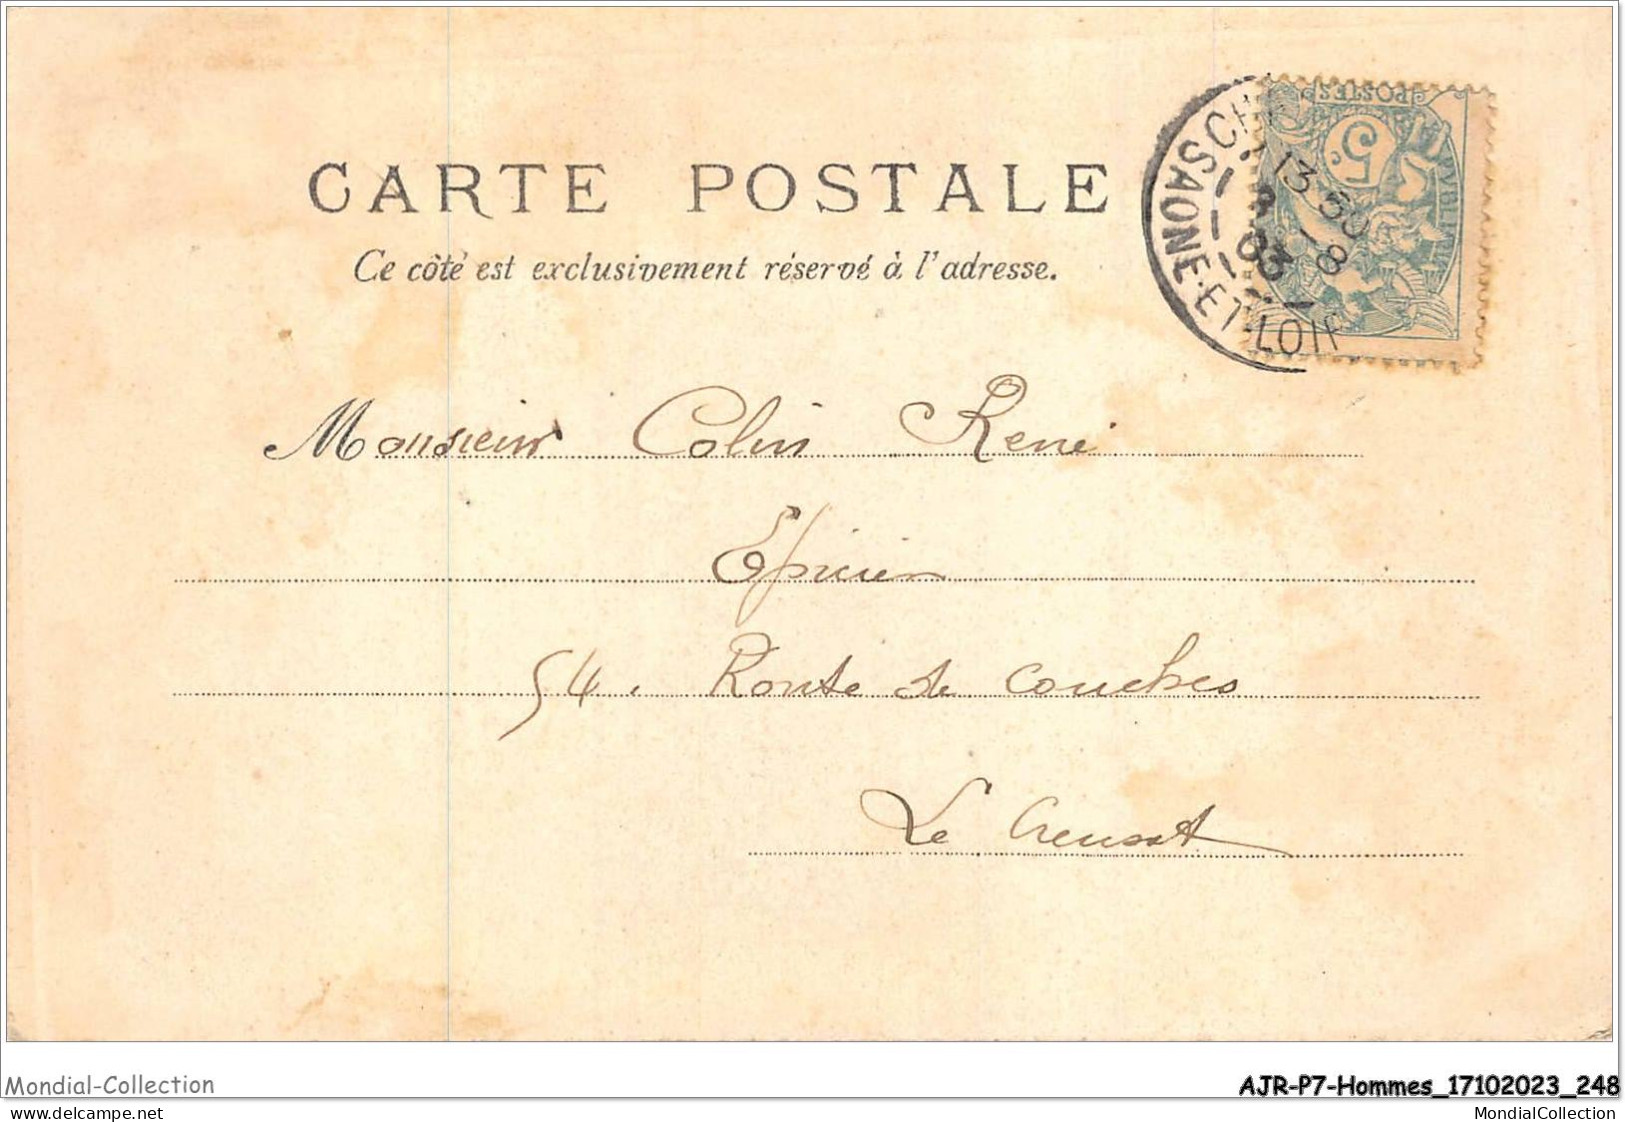 CARTE POSTALE
Ce côté est exclusivement réservé à l'adresse.
POSTES
5c
13 50
8
03
SAONE-ET-LOIR
Monsieur Colin René
Epicier
54. Route de Couches
Le Creusot
Mondial-Collection
AJR-P7-Hommes_17102023_248
delcampe.net
MondialCollection